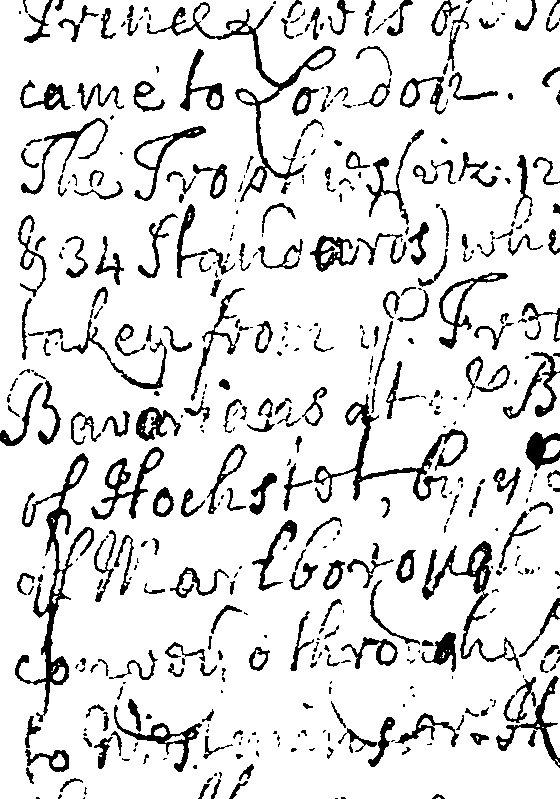 Prince Lewis of B
came to London.
The Trophies (viz. 12
& 34 Standards) whi
taken from ye. Fren
Bavarians at ye B
of Hochstet, by ye
of Marlborough
convoy'd through
to Westminster H